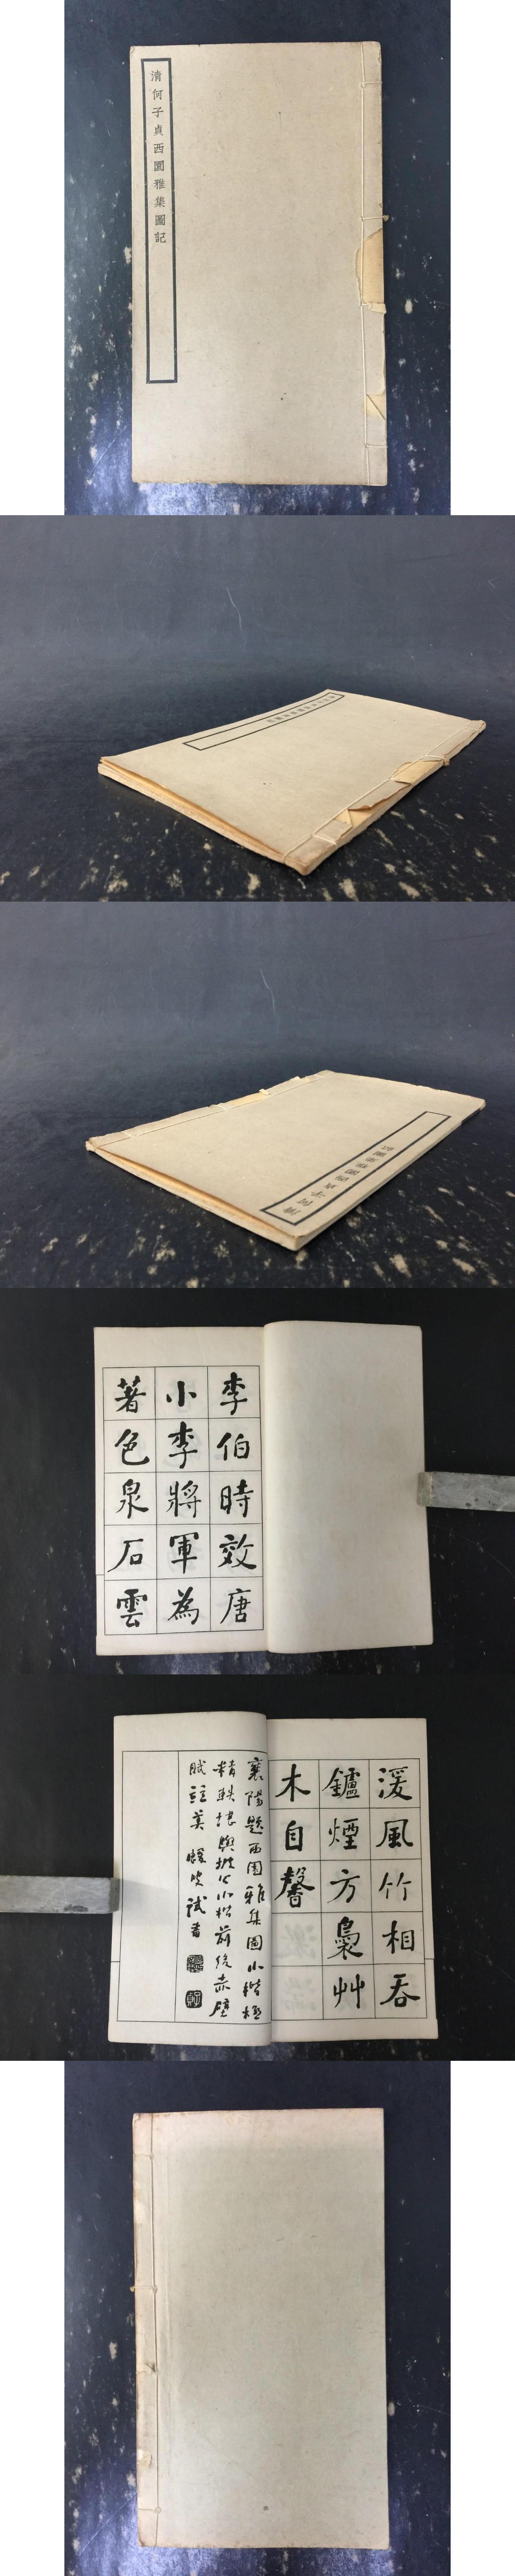 清何子貞西園雅集圖記
李伯時效唐
小李將軍為
著色泉石雲
湲風竹相吞
鑪煙方裊艸
木自馨
襄陽題西園雅集圖小楷極
精與坡公小楷前後赤壁
賦竝美 蝯叟試書